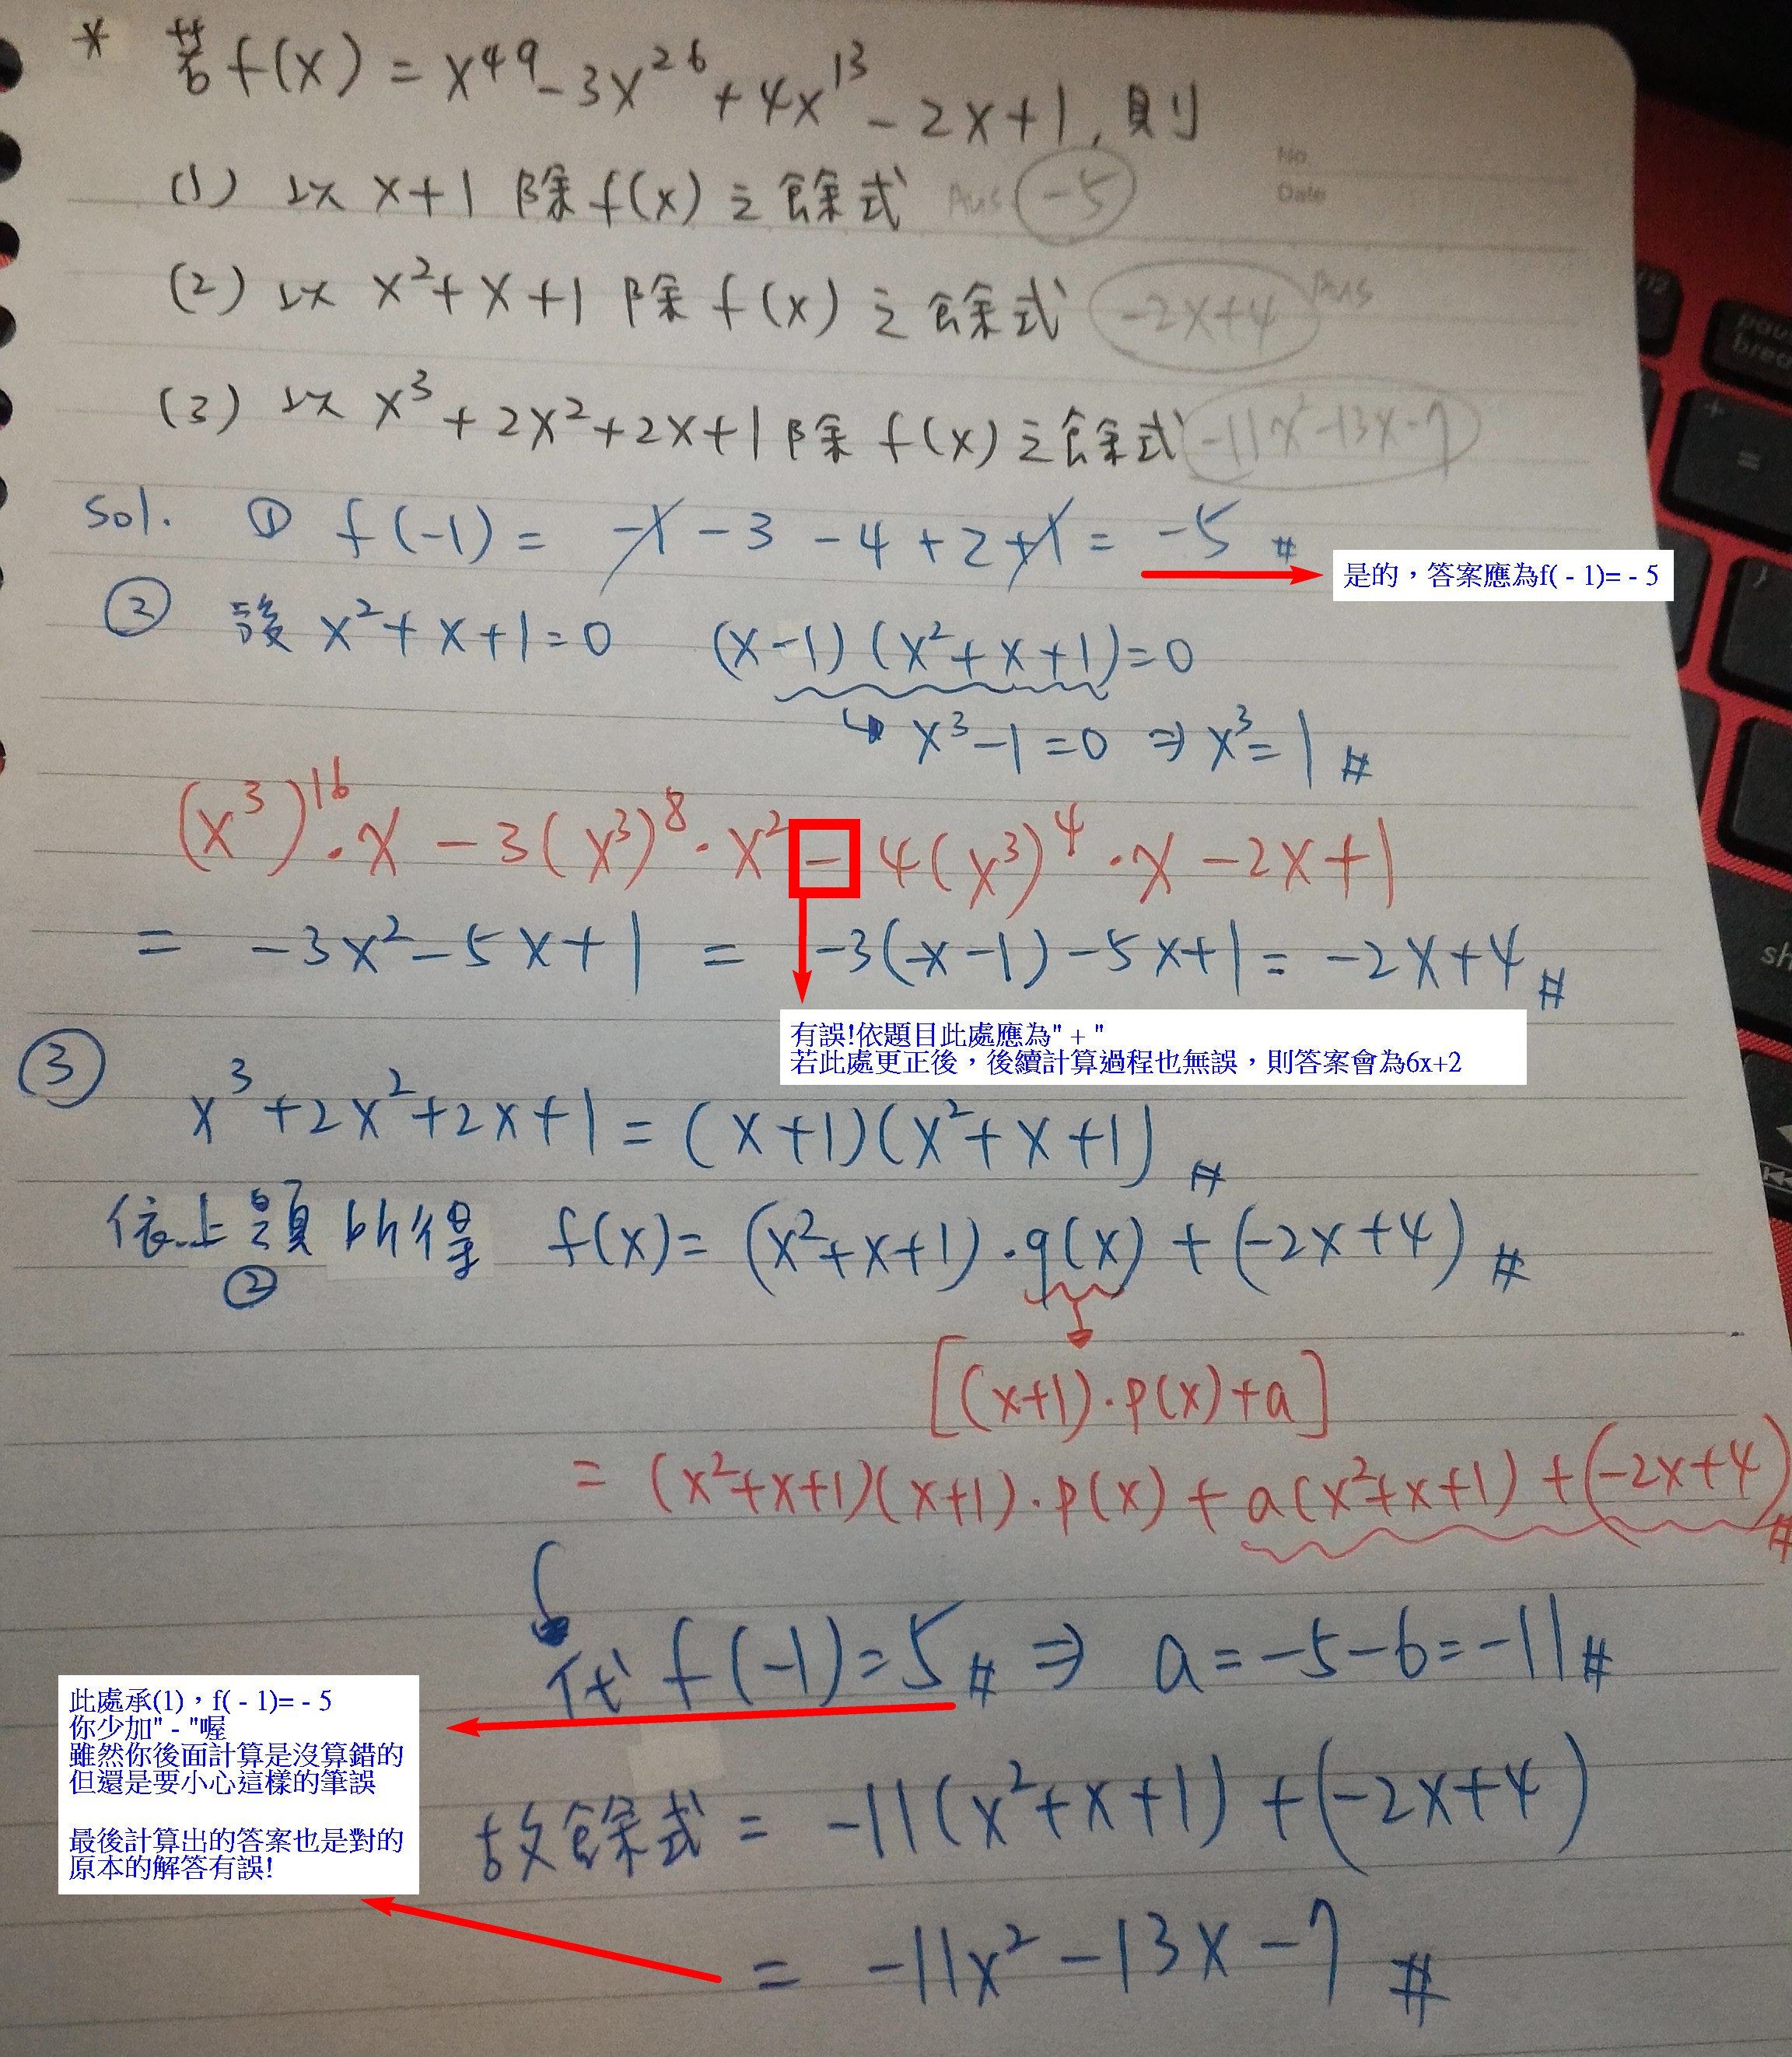 * 若f(x)=x⁴⁹-3x²⁶+4x¹³-2x+1,則
(1) 以 x+1 除f(x)之餘式 Ans -5
No.
Date
(2) 以 x²+x+1 除 f(x) 之餘式 -2x+4 Ans
(3) 以 x³+2x²+2x+1 除 f(x)之餘式 -11x²-13x-7
sol. ① f(-1) = -1-3-4+2+1 = -5 #
是的，答案應為f( - 1)= - 5
② 設 x²+x+1=0 (x-1)(x²+x+1)=0
↳ x³-1=0 ⇒ x³=1 #
(x³)¹⁶·x -3(x³)⁸·x² - 4(x³)⁴·x -2x+1
= -3x²-5x+1 = -3(-x-1)-5x+1 = -2x+4 #
有誤!依題目此處應為" + "
若此處更正後，後續計算過程也無誤，則答案會為6x+2
③ x³+2x²+2x+1 = (x+1)(x²+x+1) #
依上題所得 f(x)= (x²+x+1)·q(x) + (-2x+4) #
②
[(x+1)·p(x)+a]
= (x²+x+1)(x+1)·p(x) + a(x²+x+1) + (-2x+4) #
代 f(-1)=5 # ⇒ a=-5-6=-11 #
此處承(1)，f( - 1)= - 5
你少加" - "喔
雖然你後面計算是沒算錯的
但還是要小心這樣的筆誤
最後計算出的答案也是對的
原本的解答有誤!
故餘式 = -11(x²+x+1) + (-2x+4)
= -11x²-13x-7 #